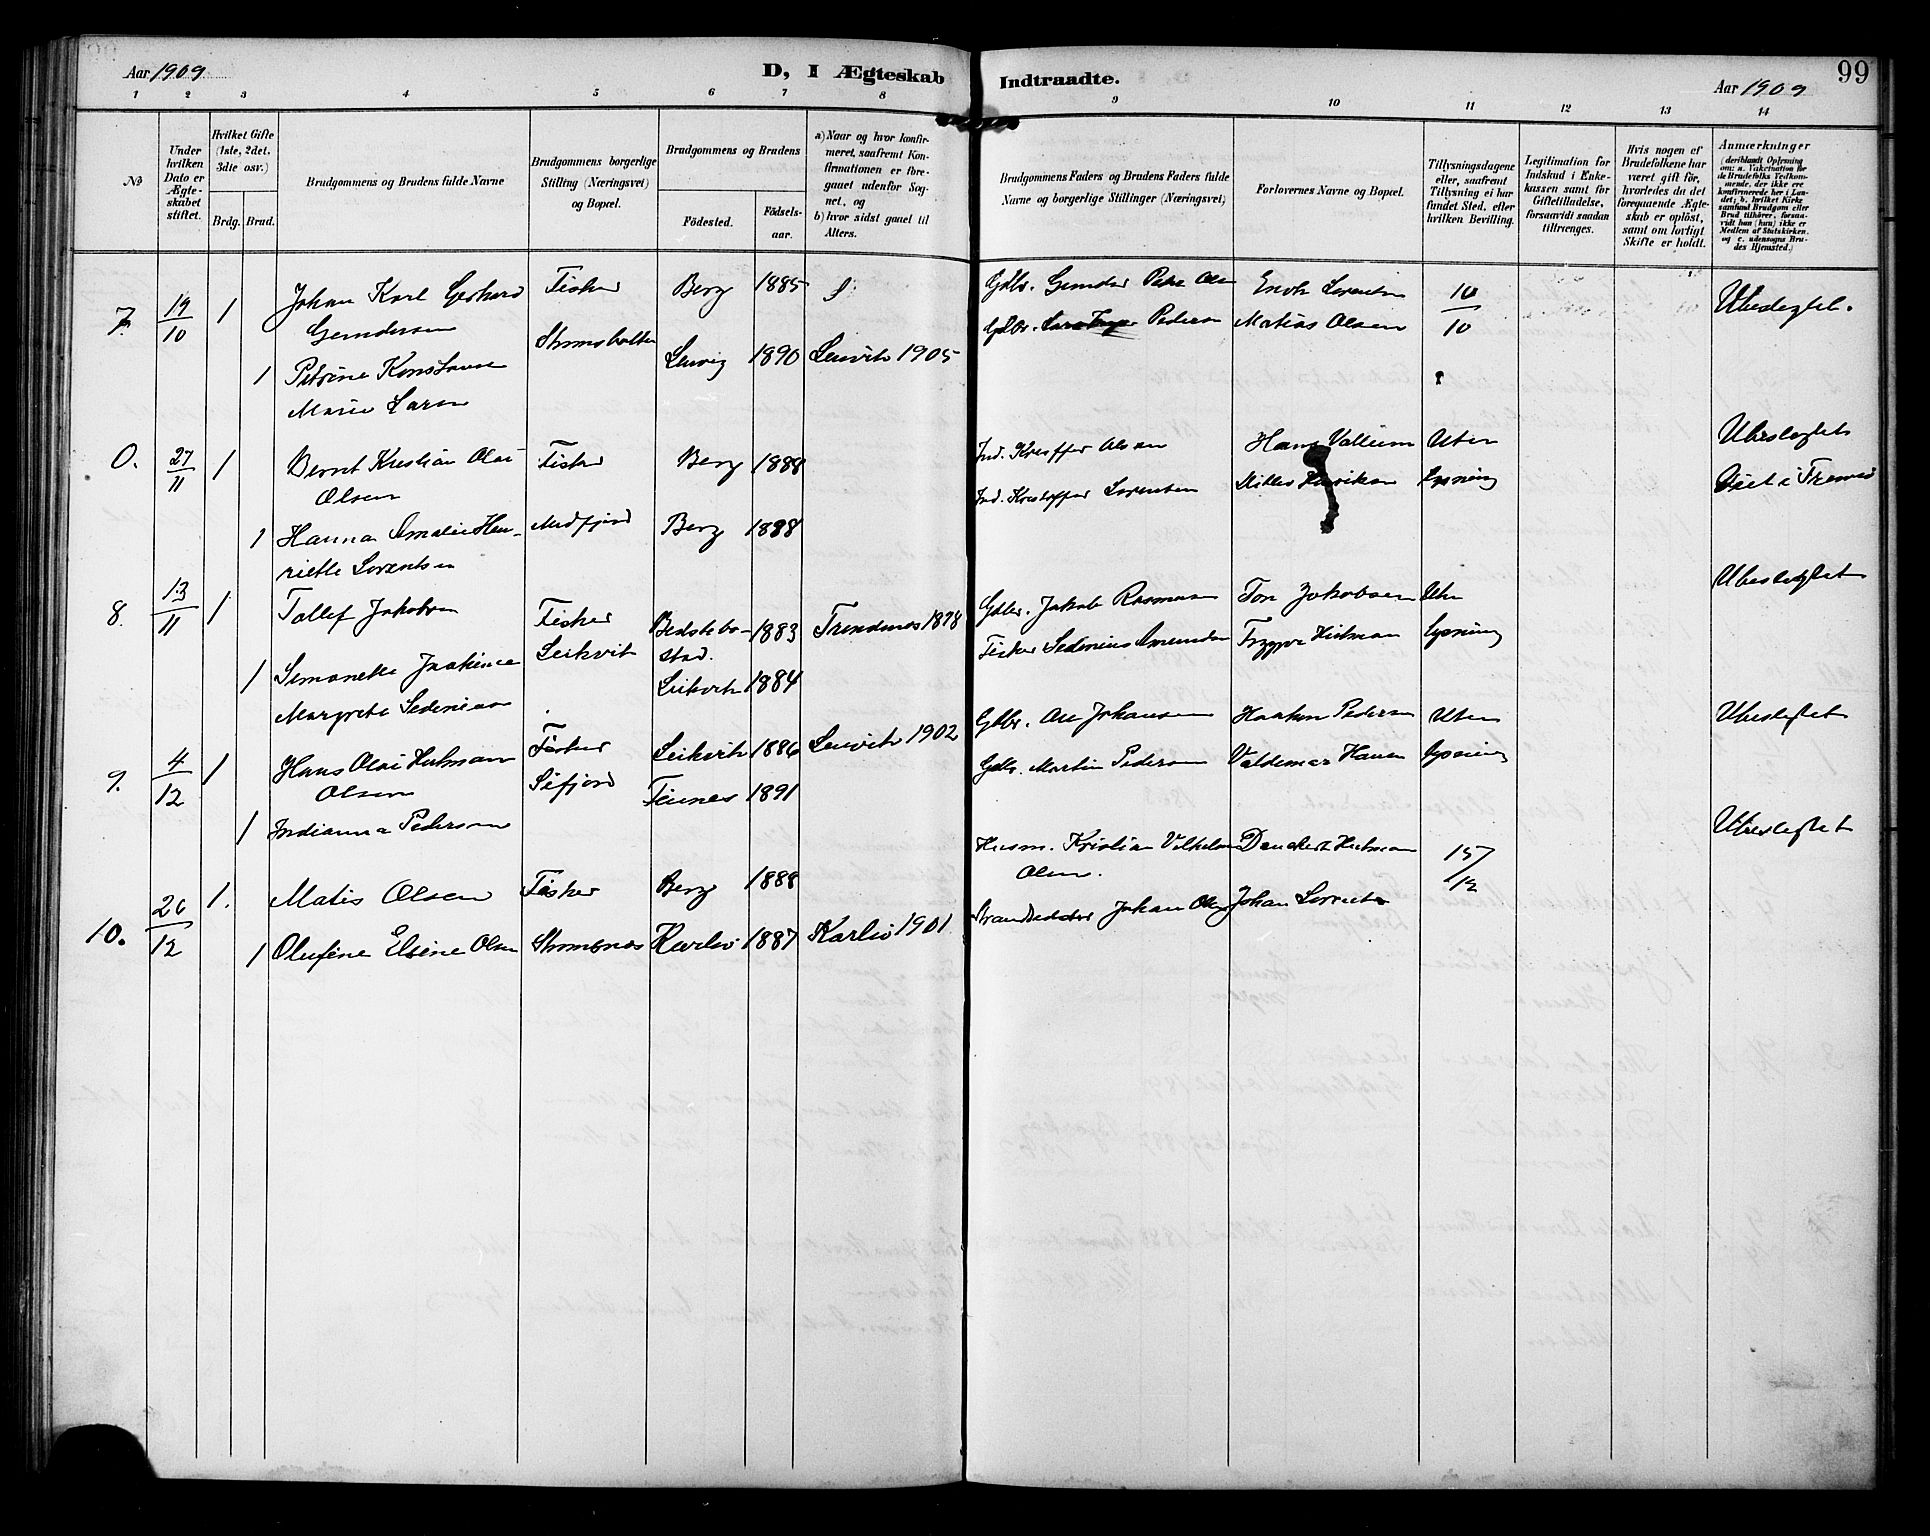 Aar 1909.
D, I Ægteskab
Indtraadte.
Aar 1909
99
1 2 3 4 5 6 7 8 9 10 11 12 13 14
No
Under hvilken Dato er Ægteskabet stiftet.
Hvilket Gifte (1ste, 2det. 3die osv.)
Brdg. Brud.
Brudgommens og Brudens fulde Navne
Brudgommens borgerlige Stilling (Næringsvei) og Bopæl.
Brudgommens og Brudens
Fødested.
Fødselsaar.
a) Naar og hvor konfirmeret, saafremt Konfirmationen er foregaaet udenfor Sognet, og
b) hvor sidst gaaet til Alters.
Brudgommens Faders og Brudens Faders fulde Navne og borgerlige Stillinger (Næringsvei)
Forlovernes Navne og Bopæl.
Tillysningsdagene eller, saafremt Tillysning ei har fundet Sted, efter hvilken Bevilling.
Legitimation for Indskud i Enkekassen samt for Giftetilladelse, forsaavidt saadan tiltrænges.
Hvis nogen af Brudefolkene har været gift før, hvorledes da det foregaaende Ægteskab er opløst, samt om lovligt Skifte er holdt.
Anmærkninger (deriblandt Oplysning om: a. Vakcination for de Brudefolks Vedkommende, der ikke ere konfirmerede her i Landet; b. hvilket Kirkesamfund Brudgom eller Brud tilhører, forsaavidt han (hun) ikke er Medlem af Statskirken, og c. udensogns Brudes Hjemsted.)
7. 19/10 1 Johan Karl Gerhard Fisker Berg 1885 Gdbr. Enok Lorentsen 10/10 Ubeslegtet.
Gdbr. Pedersen Matias Olsen
1 Petrine Konstanse 1890 1905
Marie Larsen
0. 27/11 1 Bernt Kristian Olai Fisker Berg 1888 Ind. Olsen Hans Uten Ubeslegtet
Olsen Ind. Kristoffer Lorentsen Lysning Viet i
1 Hanna Amalie Hen- Medfjord Berg 1888
riette Lorentsen
8. 13/11 1 Tollef Jakobsen Fisker 1883 Trondenes 1898 Gdbr. Jakob Rasmussen Jakobsen Uten Ubeslegtet
1 Simonette Jakobine Leikvik Leikvik 1884 Fisker Sedenius Amundsen Trygve Heitman Lysning
Margrete Sedeniusen
9. 4/12 1 Hans Olai Heitmann Fisker Leikvik 1886 1902 Gdbr. Ole Johansen Haakon Pedersen Uten Ubeslegtet
Olsen Sifjord 1891 Gdbr. Martin Pedersen Valdemar Hansen Lysning
1 Indianna Pedersen
10. 26/12 1. Matis Olsen Fisker Berg 1888 Husm. Kristian Vilhelm Danckert Heitman 15/12 Ubeslegtet
Olsen.
1 Olufine Elsine Olsen Karlsø 1887 Karlsø 1901 Johan Olsen Johan Lorentsen